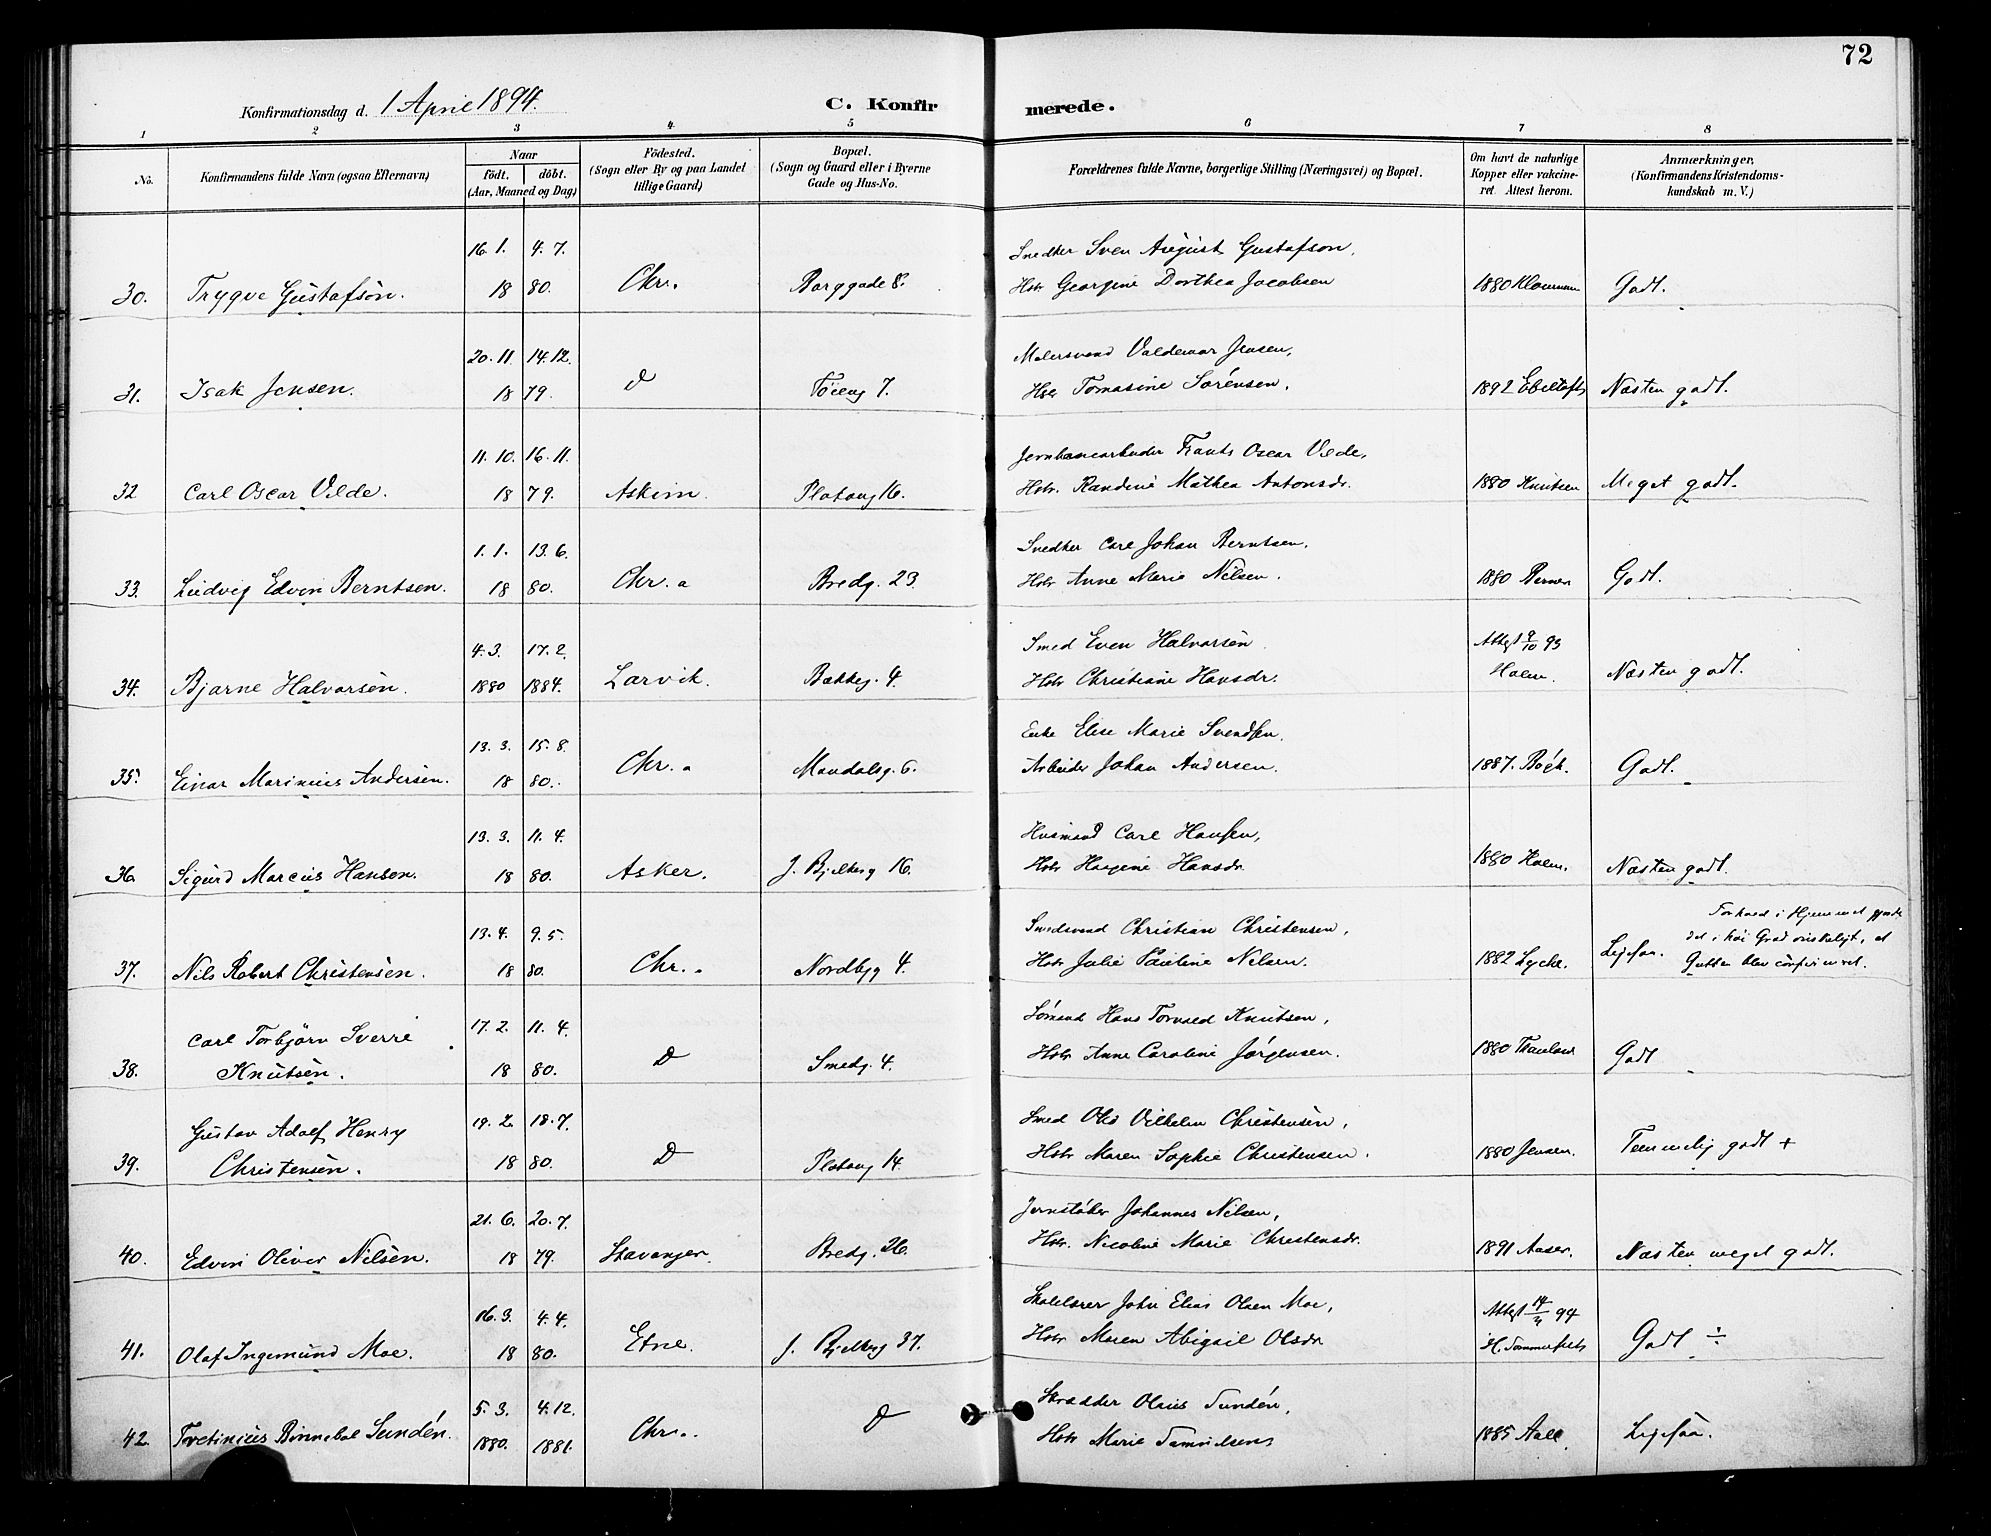 72
Konfirmationsdag d. 1 April 1894.
C. Konfirmerede.
1 2 3 4 5 6 7 8
No.
Konfirmandens fulde Navn (ogsaa Efternavn)
Naar
født. døbt.
(Aar, Maaned og Dag)
Födested.
(Sogn eller By og paa Landet
tillige Gaard)
Bopæl.
(Sogn og Gaard eller i Byerne
Gade og Hus-No.
Forældrenes fulde Navne, borgerlige Stilling (Næringsvei) og Bopæl.
Om havt de naturlige
Kopper eller vakcine-
ret. Attest herom.
Anmærkninger,
(Konfirmandens Kristendoms-
kundskab m. V.)
16. 1. 4. 7. Snedker Sven August Gustafson,
30. Trygve Gustafson. 18 80. Chr. Borggade 8. Hstr Georgine Dorthea Jacobsen 1880 Godt.
20. 11. 14. 12. Malersvend Valdemar Jensen,
31. Isak Jensen. 18 79. D Töieng 7. Hstr Tomasine Sørensen. 1892 Ebeltoft Næsten godt.
11. 10. 16. 11. Jernbanearbeider Frants Oscar Vilde,
32 Carl Oscar Vilde. 18 79. Askim. Platoug 16. Hstr. Randine Mathea Antonsdr. 1880 Knutsen Meget godt.
1. 1. 13. 6. Snedker Carl Johan Berntsen,
33. Ludvig Edvin Berntsen. 18 80. Chr. a Bredg. 23 Hstr Anne Marie Nilsen. 1880 Godt.
4. 3. 17. 2. Smed Even Halvorsen Attest 9/10 93
34. Bjarne Halvorsen. 1880 1884. Larvik. Bakkeg. 4 Hstr Christiane Hansdr. Holm. Næsten godt.
13. 3. 15. 8. Enke Elise Marie Svendsen,
35. Einar Marinius Andersen. 18 80. Chr. a Mandalsg. 6. Arbeider Johan Andersen. 1887. Bögh. Godt.
13. 3. 11. 4. Husmand Carl Hansen,
36. Sigurd Marcus Hansen. 18 80. Asker. J. Bjelkeg 16. Hstr Hansdr. 1880 Holm. Næsten godt.
13. 4. 9. 5. Smedsvend Christian Christensen,
37. Nils Robert Christensen. 18 80. Chr. a Nordbyg 4. Hstr Julie Pauline Nilsen. 1882 Lyche. Ligesaa. Forhold i Hjemmet gjorde
det i höi Grad önskeligt, at
Gutten blev confirmeret.
17. 2. 11. 4. Sømand Hans Torvald Knutsen,
38. Carl Torbjørn Sverre
Knutsen. 18 80. D Smedg. 4. Hstr Anne Caroline Jørgensen. 1880 Thaulow Godt
19. 2. 18. 7. Smed Ole Vilhelm Christensen,
39. Gustav Adolf Henry
Christensen. 18 80. D Platoug 14 Hstr Maren Sophie Christensen. 1880 Jensen. Temmelig godt +
21. 6. 20. 7. Jernstøber Johannes Nilsen,
40. Edvin Oliver Nilsen. 18 79. Stavanger Bredg. 26. Hstr. Nicoline Marie Christensdr. 1891 Aaser. Næsten meget godt.
16. 3. 4. 4. Skolelærer John Elias Olsen Moe, Attest 14/3 94
41. Olaf Ingemund Moe. 18 80. Etne. J. Bjelkeg 37. Hstr Maren Abigail Olsdr H. Sommerfelt Godt ÷
5. 3. 4. 12. Skrædder Olaus Sundén,
42. Sundén. 1880. 1881. Chr. D Hstr Marie Samuelsen 1885 Aall. Ligesaa.